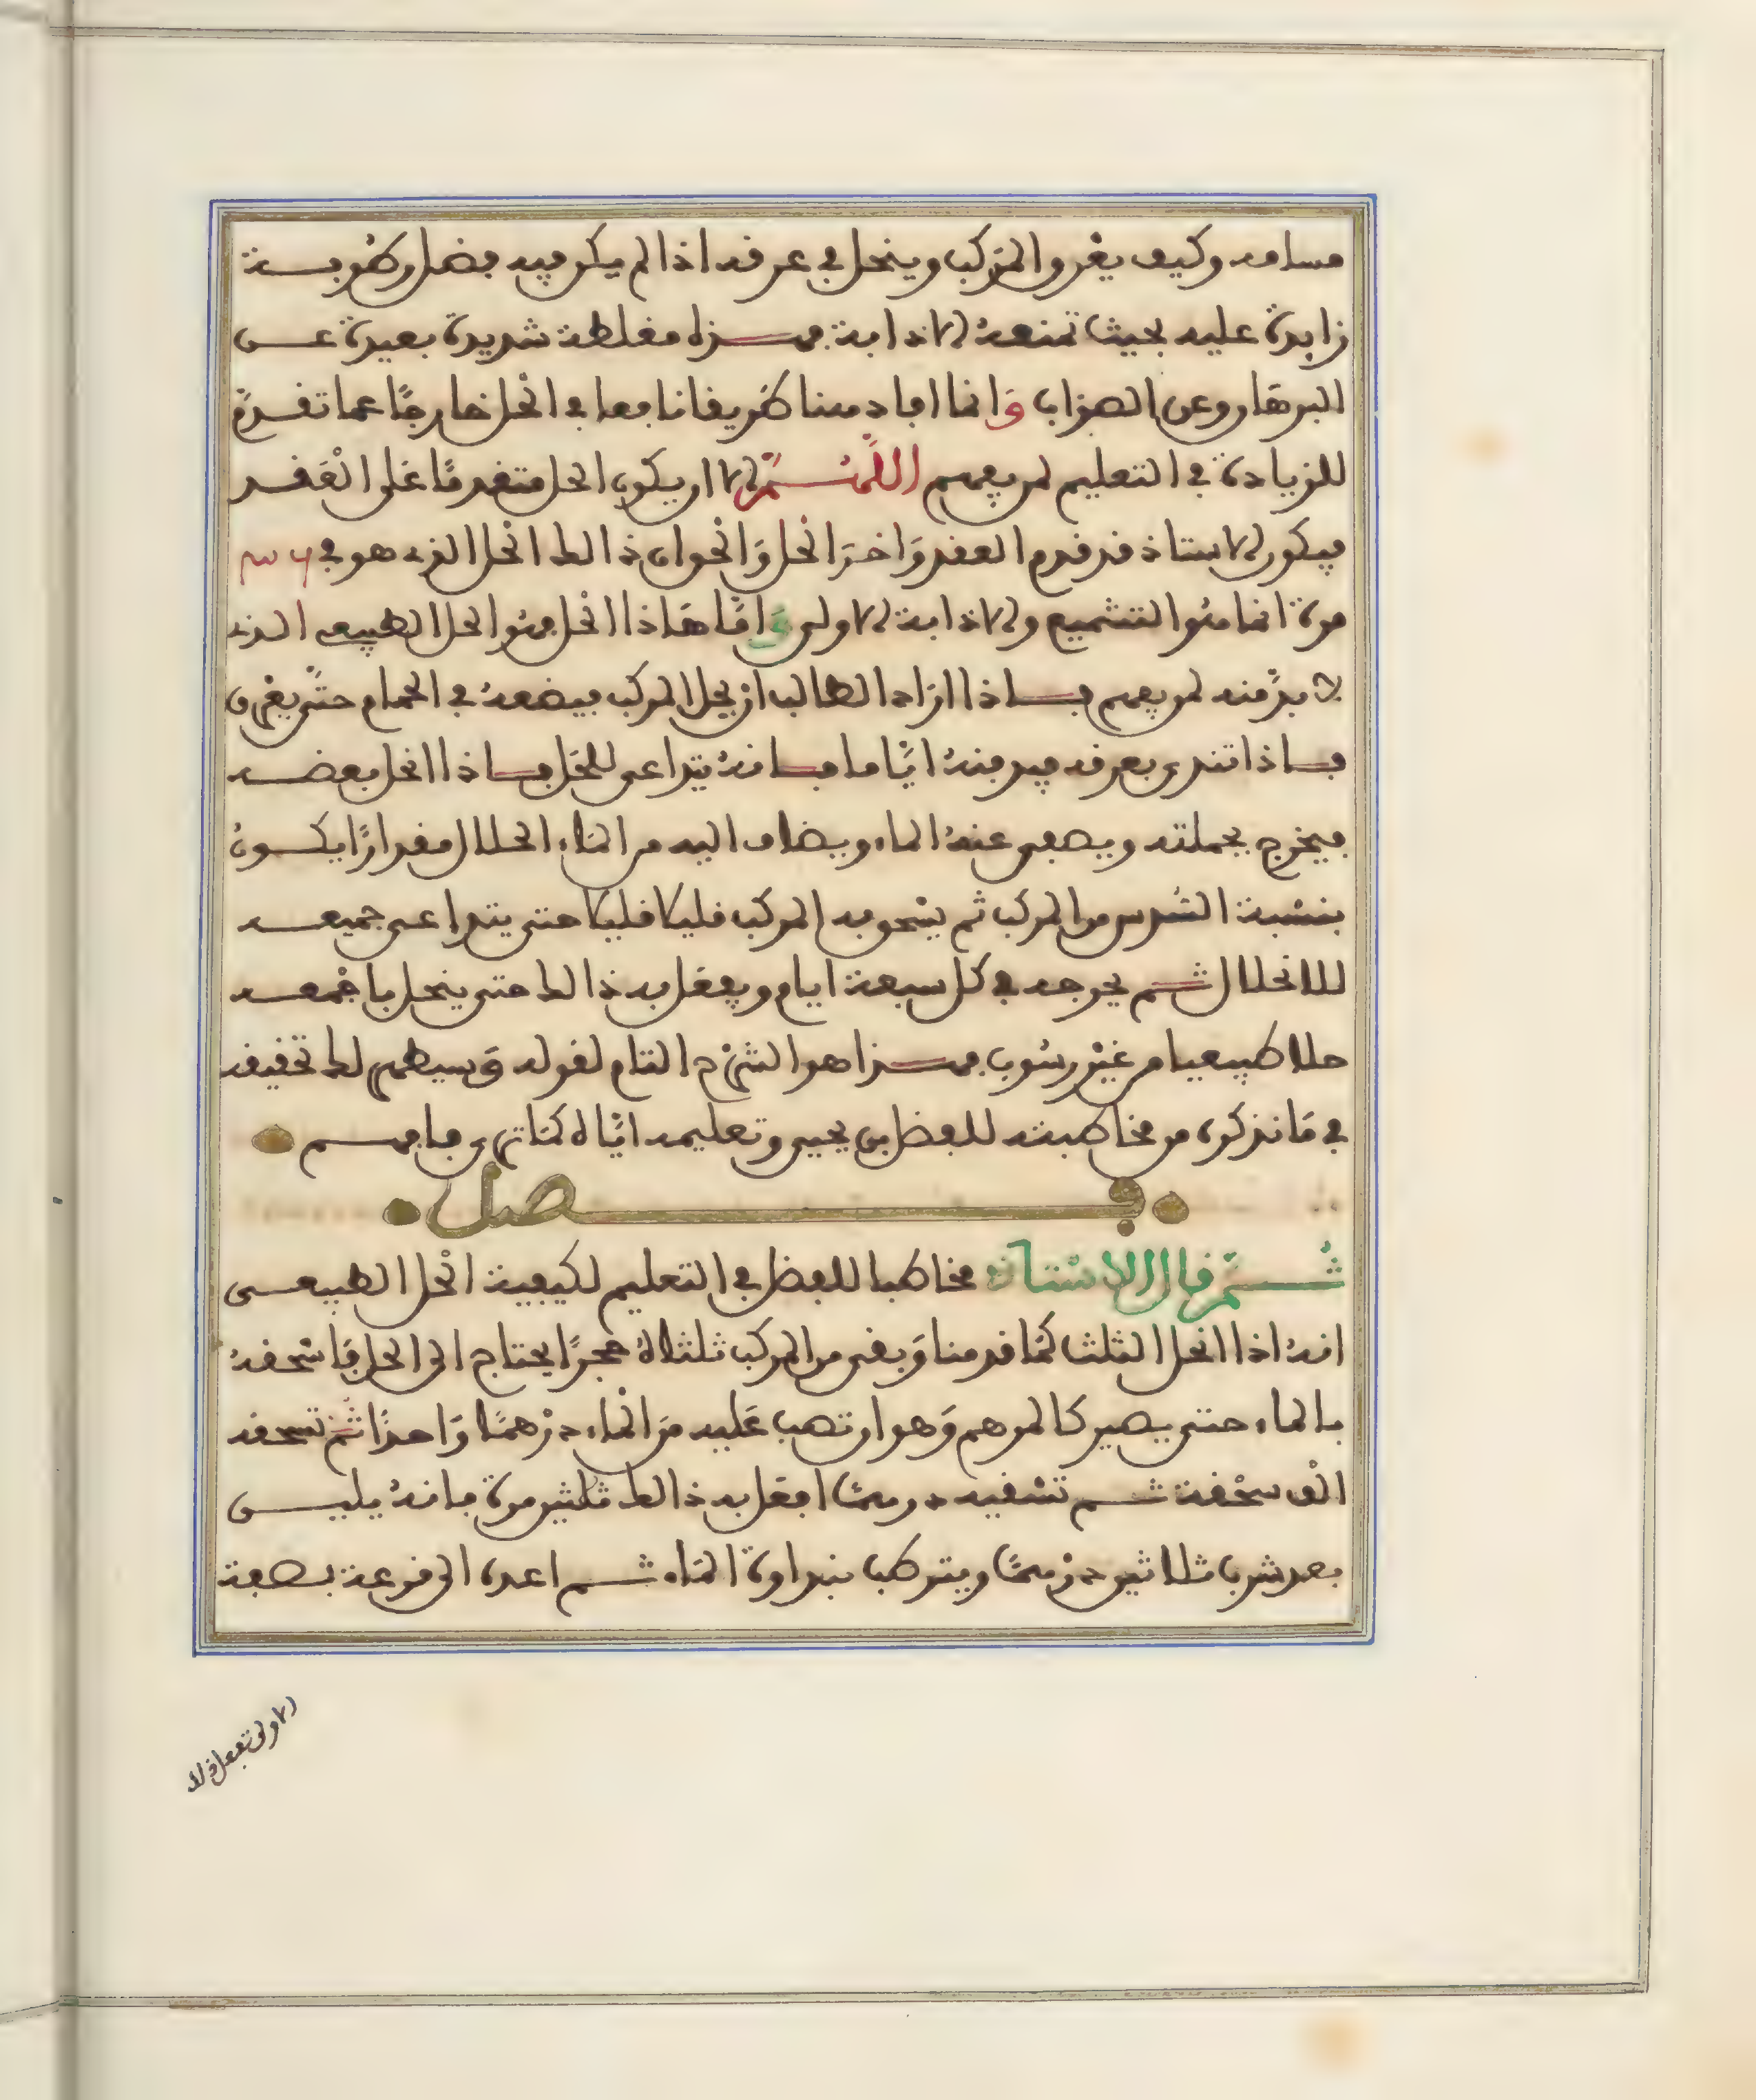 مسامه وكيف يغرق المركب وينحل في عرقه اذا لم يكن فيه فضل رطوبة
زايدة عليه بحيث تمنعه الاذابة فهذه مغلطة شديدة بعيدة عن
البرهان وعن الصواب وانما افادهنا طريقا نافعا في الحل خارجا عما تقدم
للزيادة في التعليم لمن يفهم اللهم الا ان يكون الحل متقدما على العقد
فيكون الاستاذ قد قدم العقد واخر الحل والجواب ذالك الحل الذي هو في
مرة انما هو التشميع والاذابة الاولى واما هاذا الحل فهو الحل الطبيعي الذي
لا بد منه لمن يفهم فاذا اراد الطالب ان يحل المركب فيضعه في الحمام حتى يغرق
فاذا تندى بعرقه فيه فيه اياما فانه يتداعى للحل فاذا انحل بعضه
فيخرج بجملته ويصفى عنه الماء ويضاف اليه من الماء الحلال مقدارا يكون
بنسبة السدس من المركب ثم يسحق به المركب قليلا قليلا حتى يتداعى جميعه
للانحلال ثم يخرجه في كل سبعة ايام ويفعل به ذالك حتى ينحل باجمعه
حلا طبيعيا من غير رسوب فهذا هو الشرح التام لقوله وسيظهر لك تحقيقه
في ما نذكره من مخاطبته للفضل بن يحيى وتعليمه اياه كما ترى فافهم
فصل
ثم قال الاستاذ مخاطبا للفضل في التعليم لكيفية الحل الطبيعي
انه اذا انحل الثلث كما قدمنا وبقى من المركب ثلثاه حجرا يحتاج الى الحل فاسحقه
بالماء حتى يصير كالمرهم وهو ان تصب عليه من الماء درهما واحدا ثم تسحقه
الف سحقة ثم تسقيه درهما افعل به ذالك ثلثين مرة فانه يليس
بعد شرب ثلاثين درهما ويترطب بنداوة الماء ثم اعده الى قرعة بصفة
الاولى تفعل ذلك